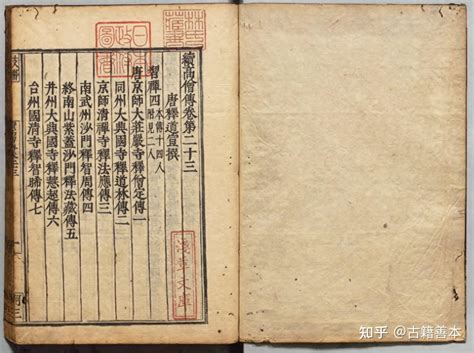 續高僧傳卷第二十三
唐釋道宣撰
習禪四 本傳十四人 附見二人
唐京師大莊嚴寺釋僧定傳一
同州大興國寺釋道林傳二
京師清禪寺釋法應傳三
南武州沙門釋智周傳四
終南山紫蓋沙門釋法藏傳五
并州大興國寺釋慧超傳六
台州國清寺釋智晞傳七
日本
政府
圖書
淺草文庫
知乎 @古籍善本